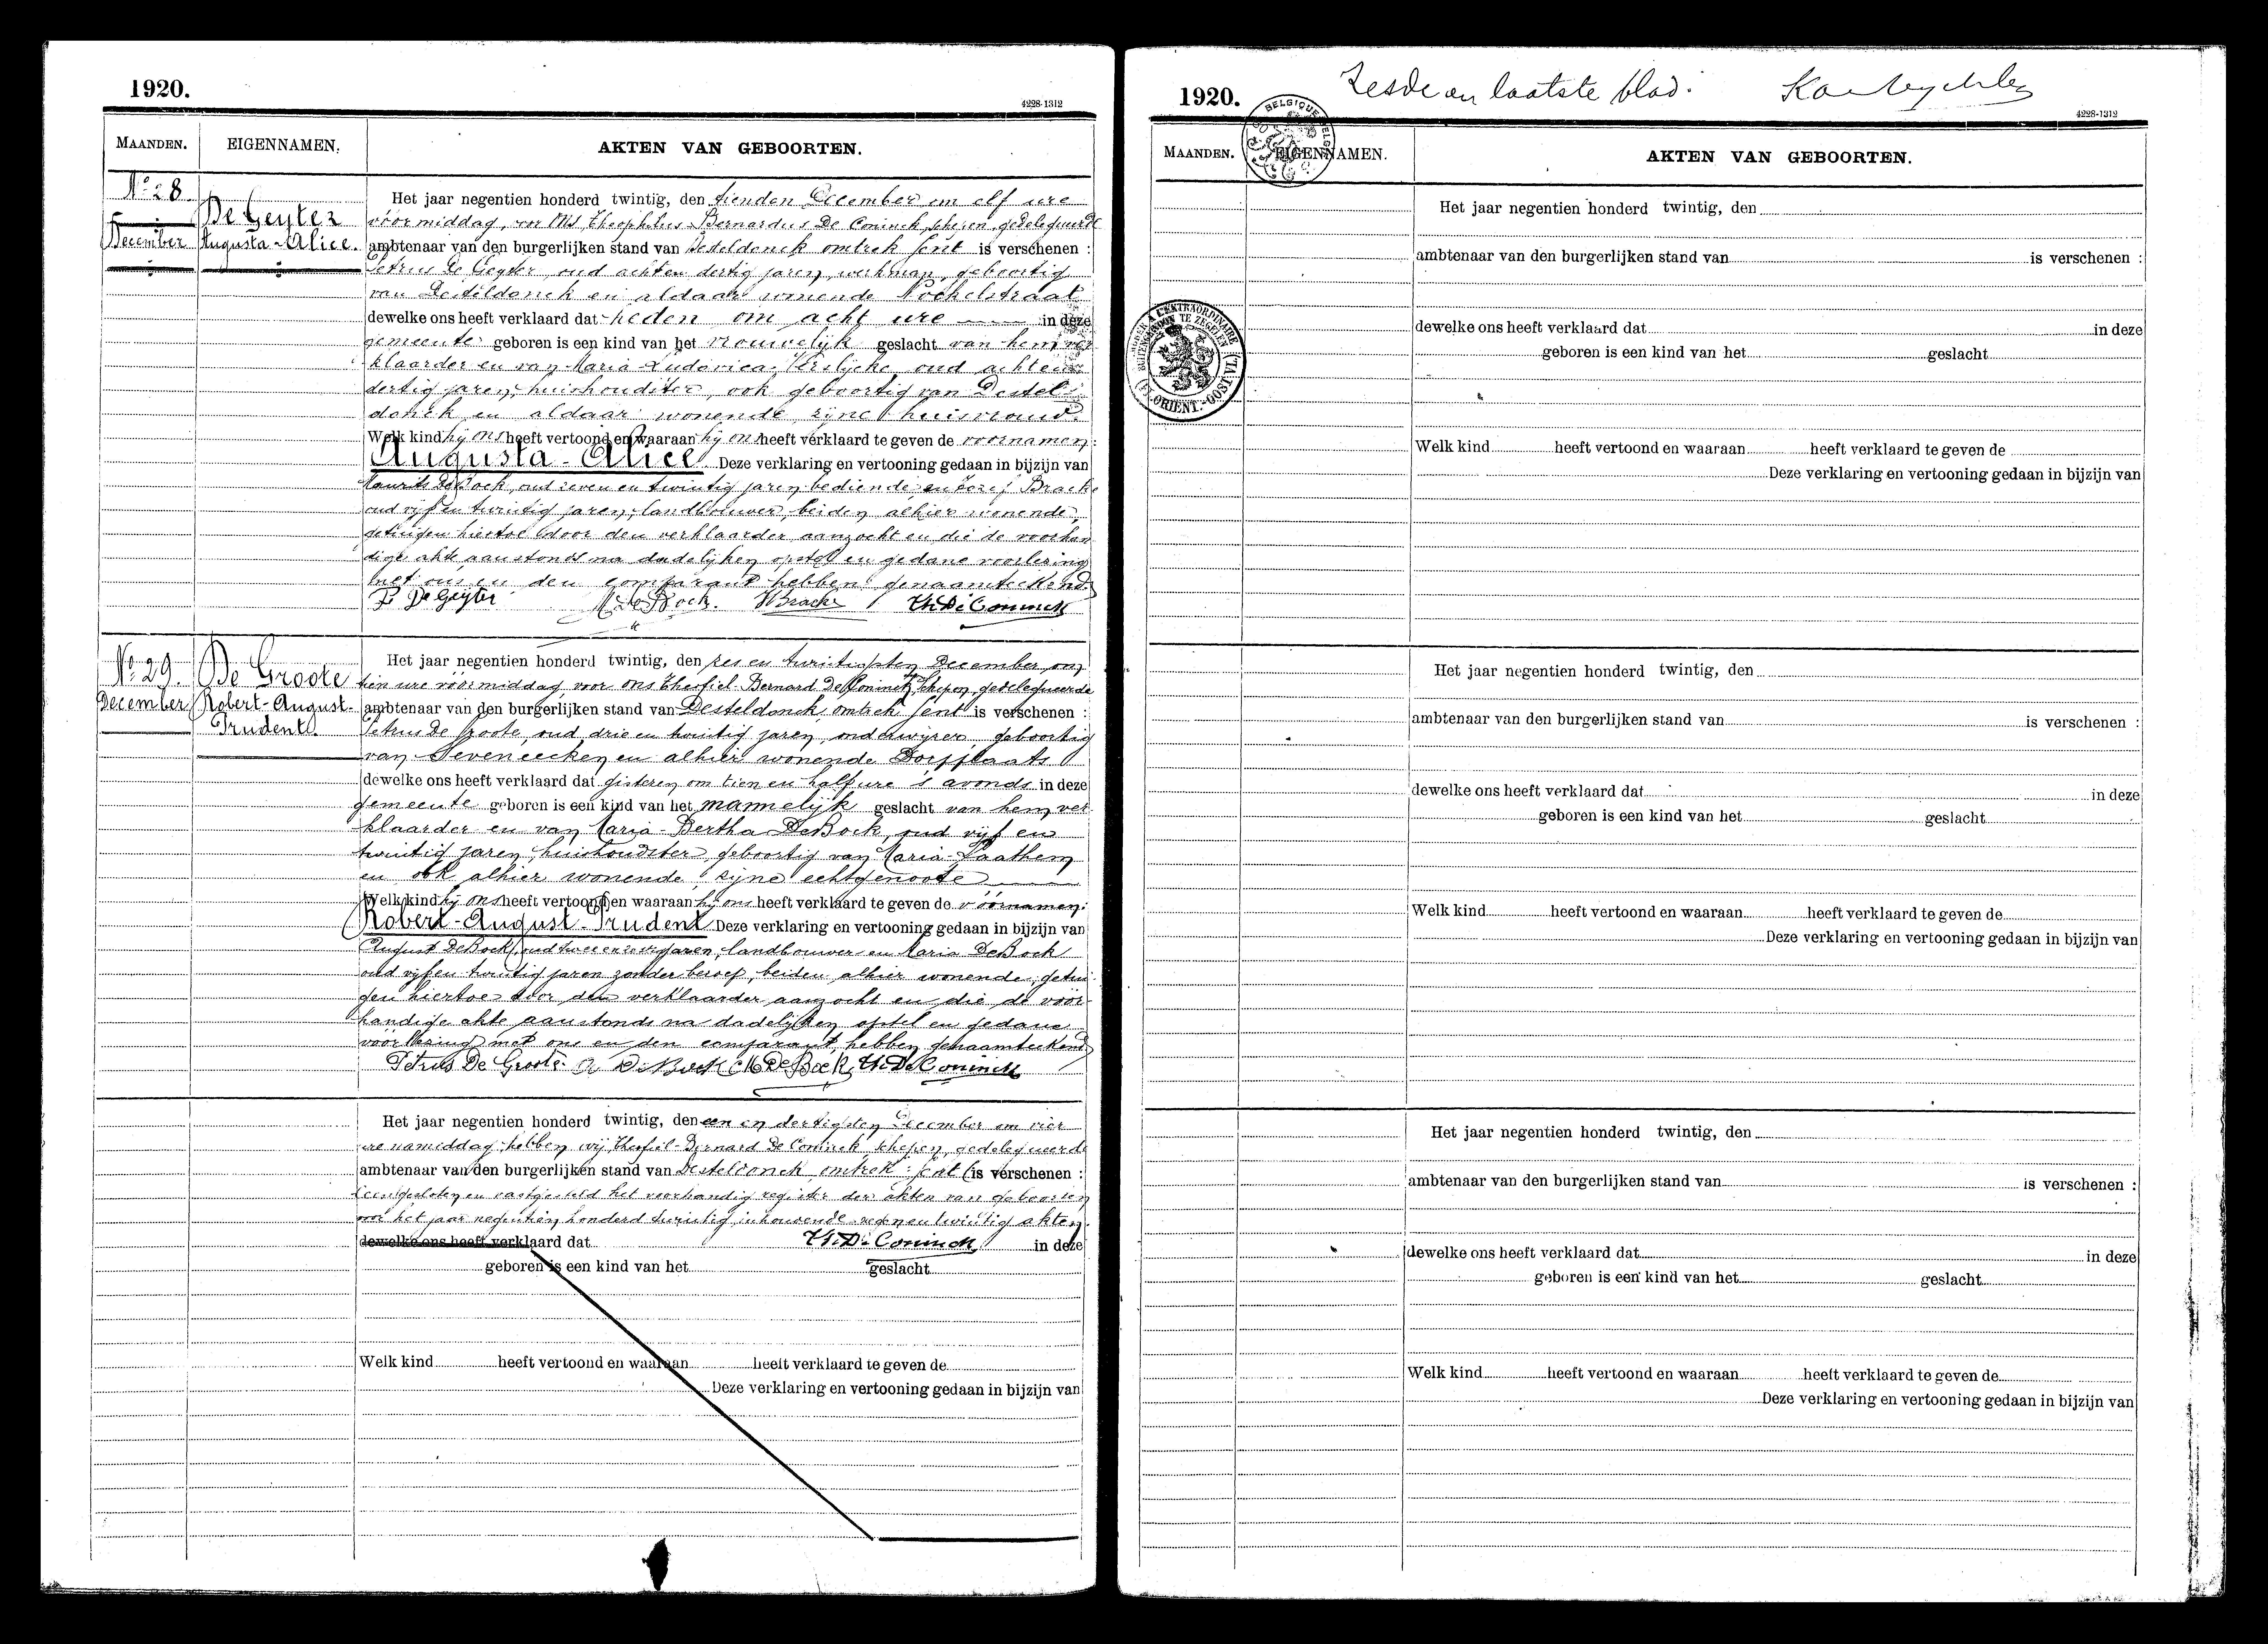 1920.
4228-1312
MAANDEN.
EIGENNAMEN.
AKTEN VAN GEBOORTEN.
N° 28
December
De Geyter
Augusta-Alice.
Het jaar negentien honderd twintig, den tienden December om elf ure
voormiddag, voor Ons Theophilus Bernardus De Coninck schepen gedelegueerde
ambtenaar van den burgerlijken stand van Desteldonck omtrek Gent is verschenen :
Petrus De Geyter, oud acht en dertig jaren, werkman, geboortig
van Desteldonck en aldaar wonende
dewelke ons heeft verklaard dat heden om acht ure in deze
gemeente geboren is een kind van het vrouwelijk geslacht van hem ver
klaarder en van Maria Ludovica oud acht en
dertig jaren, huishoudster, ook geboortig van Destel
donck en aldaar wonende zijne huisvrouw.
Welk kind hij ons heeft vertoond en waaraan hij ons heeft verklaard te geven de voornamen:
Augusta-Alice Deze verklaring en vertooning gedaan in bijzijn van
Maurits De Bock, oud zeven en twintig jaren bediende, en Jozef Bracke
oud vijf en twintig jaren, landbouwer, beiden alhier wonende,
getuigen hiertoe door den verklaarder aanzocht en die de voorhan
dige akte aanstonds na dadelijken opstel en gedane voorlezing
met ons en den comparant hebben genaamteekend.
P De Geyter M. De Bock. J Bracke Th. De Coninck
N° 29.
December
De Groote
Robert-August-
Prudent.
Het jaar negentien honderd twintig, den zes en twintigsten December om
tien ure voormiddag, voor ons Theofiel Bernard De Coninck, schepen, gedelegueerde
ambtenaar van den burgerlijken stand van Desteldonck, omtrek Gent is verschenen :
Petrus De Groote, oud drie en twintig jaren, onderwijzer, geboortig
van Seveneecken en alhier wonende Dorpplaats
dewelke ons heeft verklaard dat gisteren om tien en half ure 's avonds in deze
gemeente geboren is een kind van het mannelijk geslacht van hem ver
klaarder en van Maria-Bertha De Bock, oud vijf en
twintig jaren, huishoudster, geboortig van Maria-Laathem
en ook alhier wonende, zijne echtgenoote
Welk kind hij ons heeft vertoond en waaraan hij ons heeft verklaard te geven de voornamen:
Robert-August-Prudent Deze verklaring en vertooning gedaan in bijzijn van
August De Bock, oud twee en zestig jaren, landbouwer en Maria De Bock
oud vijf en twintig jaren zonder beroep, beiden alhier wonende, getui
gen hiertoe door den verklaarder aanzocht en die de voor
handige akte aanstonds na dadelijken opstel en gedane
voorlezing met ons en den comparant, hebben genaamteekend
Petrus De Groote A De Bock M De Bock Th. De Coninck
Het jaar negentien honderd twintig, den een en dertigsten December om vier
ure namiddag hebben wij Theofiel-Bernard De Coninck, schepen, gedelegueerde
ambtenaar van den burgerlijken stand van Desteldonck omtrek Gent is verschenen :
gesloten en vastgesteld het voorhandig register der akten van geboorten
voor het jaar negentien honderd twintig inhoudende negen en twintig akten.
dewelke ons heeft verklaard dat Th. De Coninck in deze
geboren is een kind van het geslacht
Welk kind heeft vertoond en waaraan heeft verklaard te geven de
Deze verklaring en vertooning gedaan in bijzijn van
1920.
Zesde en laatste blad.
4228-1312
BELGIQUE
MAANDEN.
EIGENNAMEN.
AKTEN VAN GEBOORTEN.
Het jaar negentien honderd twintig, den
ambtenaar van den burgerlijken stand van is verschenen :
dewelke ons heeft verklaard dat in deze
geboren is een kind van het geslacht
Welk kind heeft vertoond en waaraan heeft verklaard te geven de
Deze verklaring en vertooning gedaan in bijzijn van
Het jaar negentien honderd twintig, den
ambtenaar van den burgerlijken stand van is verschenen :
dewelke ons heeft verklaard dat in deze
geboren is een kind van het geslacht
Welk kind heeft vertoond en waaraan heeft verklaard te geven de
Deze verklaring en vertooning gedaan in bijzijn van
Het jaar negentien honderd twintig, den
ambtenaar van den burgerlijken stand van is verschenen :
dewelke ons heeft verklaard dat in deze
geboren is een kind van het geslacht
Welk kind heeft vertoond en waaraan heeft verklaard te geven de
Deze verklaring en vertooning gedaan in bijzijn van